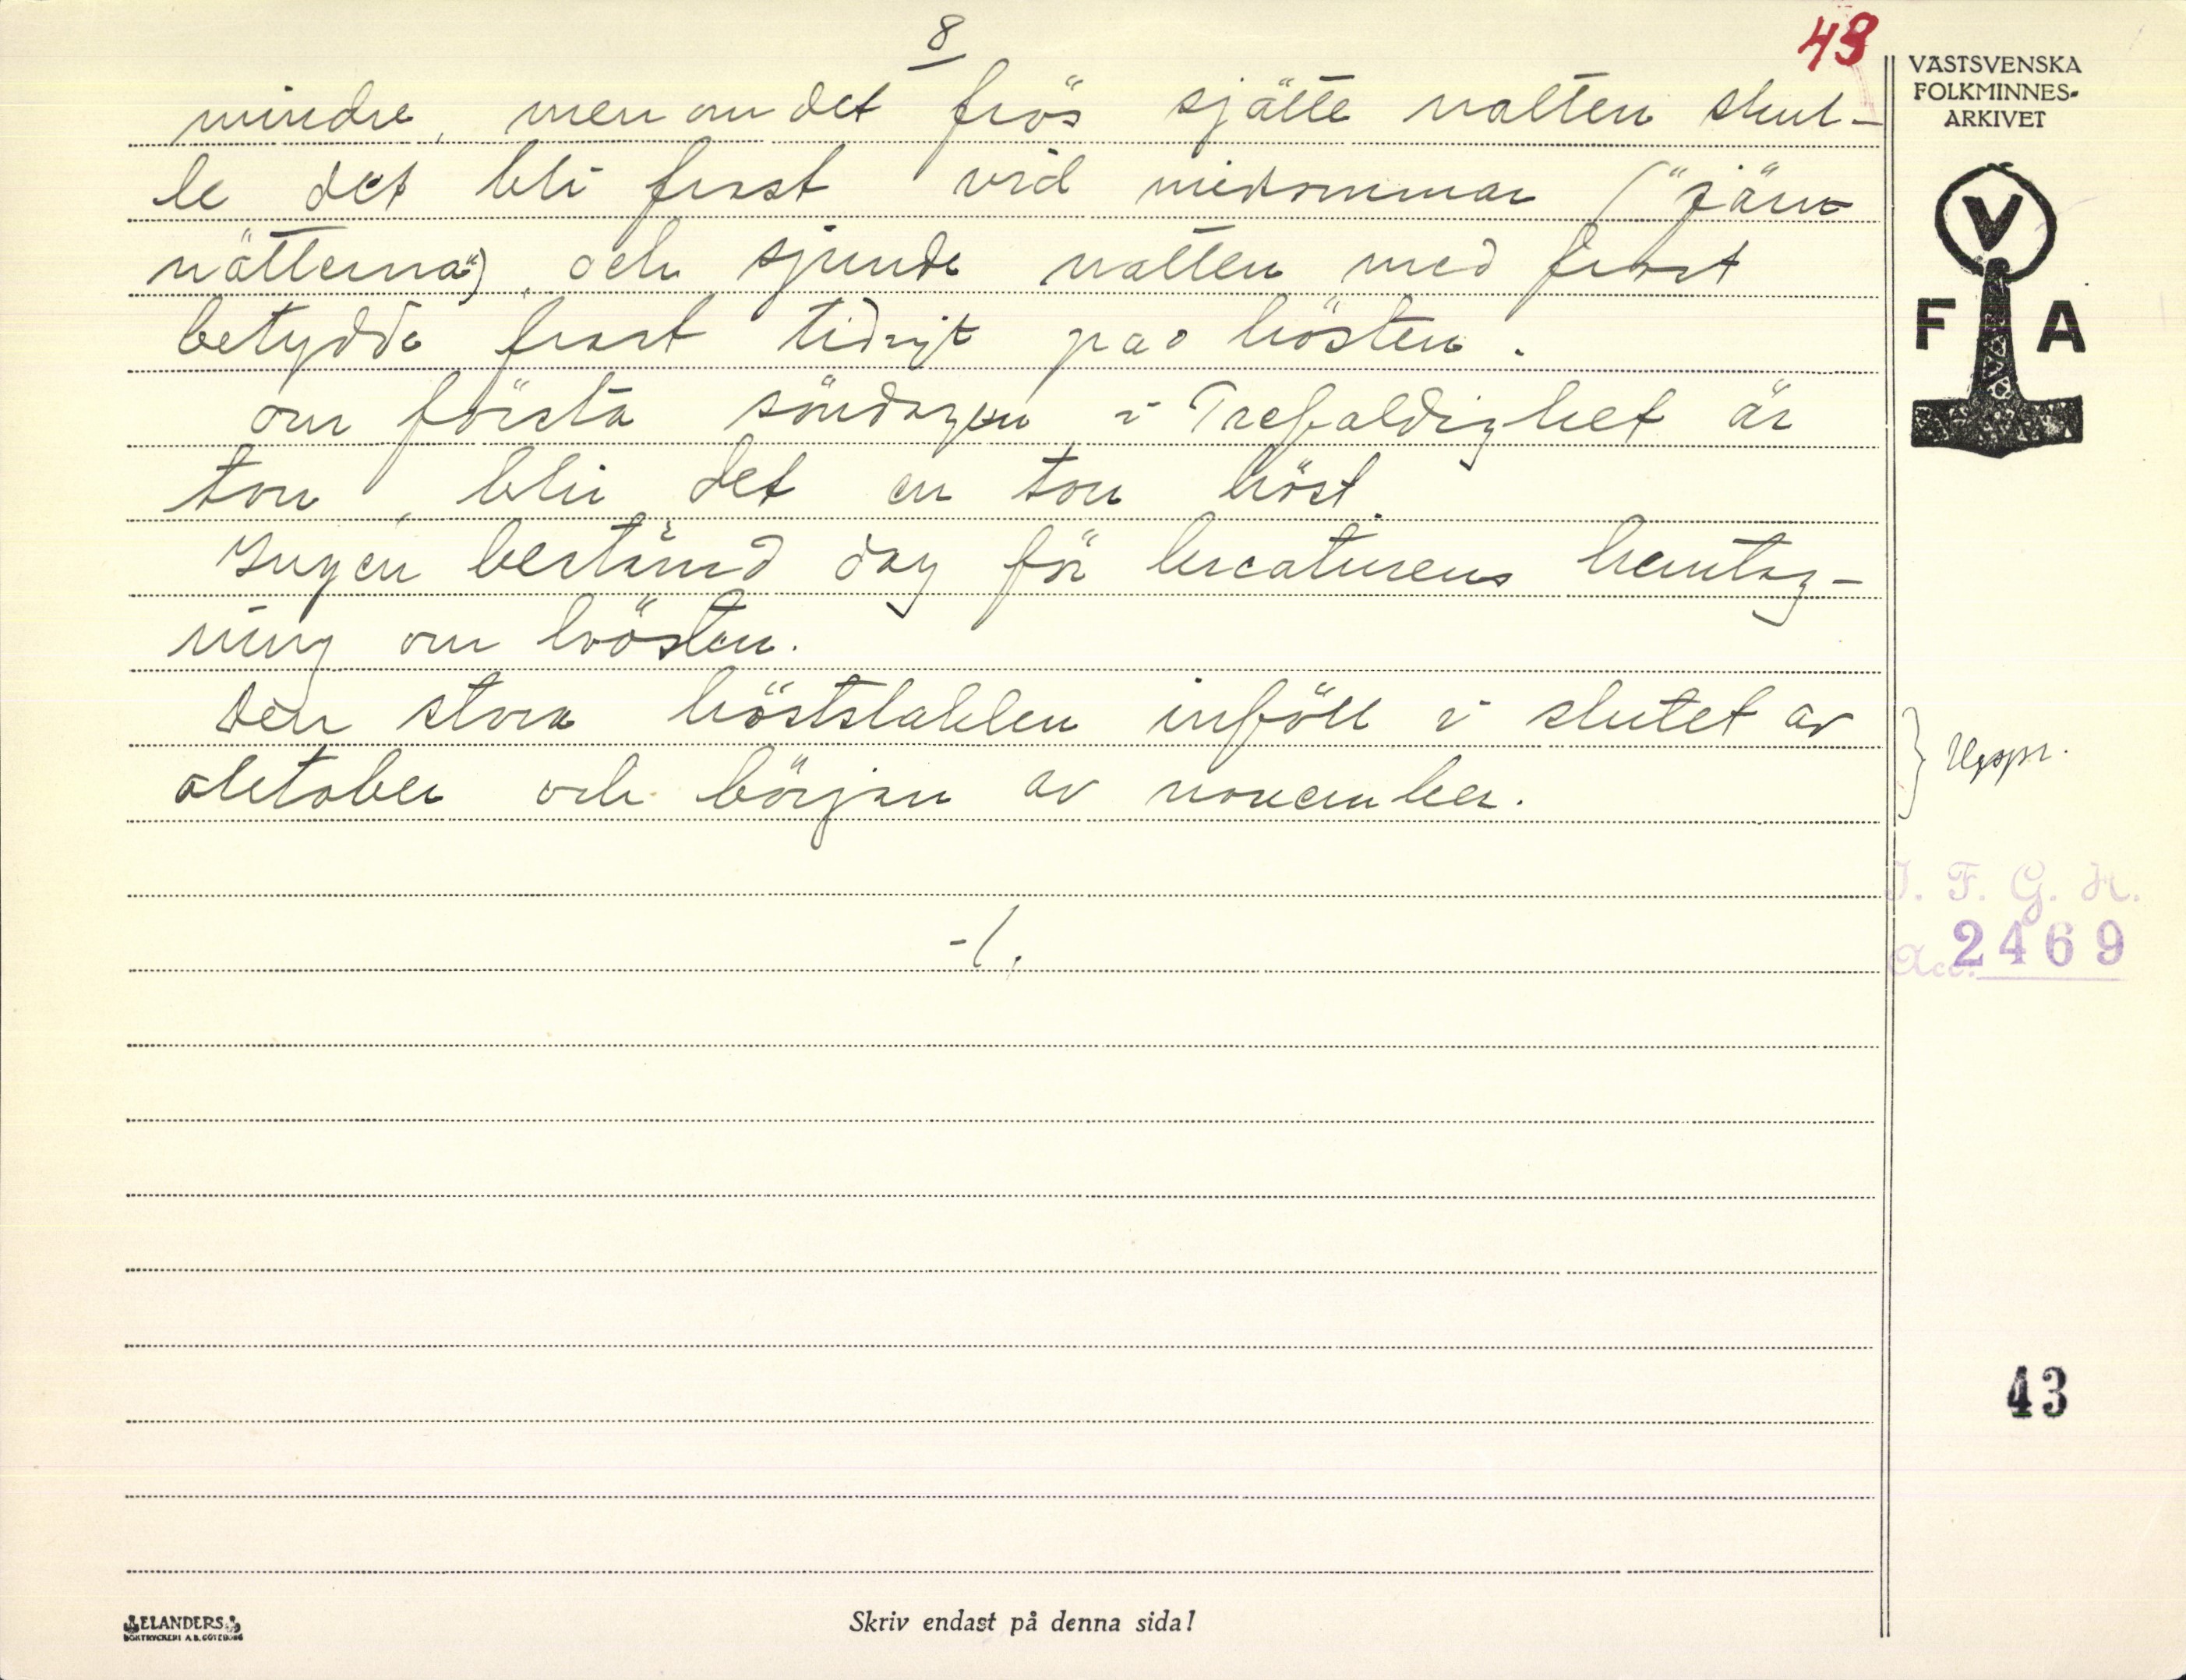 8
43
mindre, men om det frös sjätte natten skul-
le det bli frost vid midsommar ("järn-
nätterna"), och sjunde natten med frost
betydde frost tidigt på hösten.
om första söndagen i Trefaldighet är
torr, blir det en torr höst.
Ingen bestämd dag för kreaturens hemtag-
ning om hösten.
Den stora höstslakten inföll i slutet av
oktober och början av november.
-/.
VÄSTSVENSKA
FOLKMINNES-
ARKIVET
V
F A
Uppr.
I. F. G. H.
Acc. 2469
43
ELANDERS
BOKTRYCKERI A.B. GÖTEBORG
Skriv endast på denna sida!